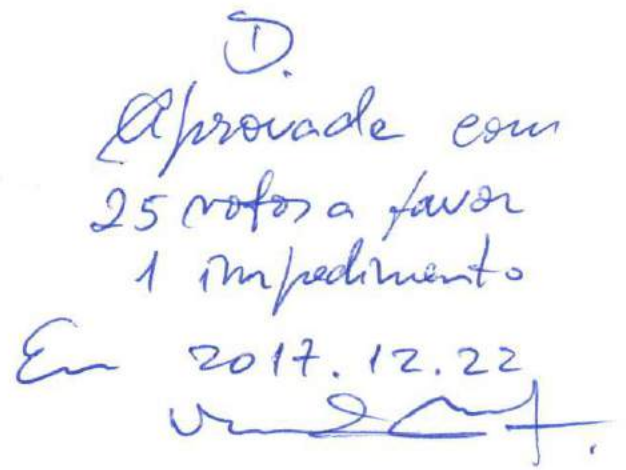 D.
Aprovada com
25 votos a favor
1 impedimento
Em 2017.12.22